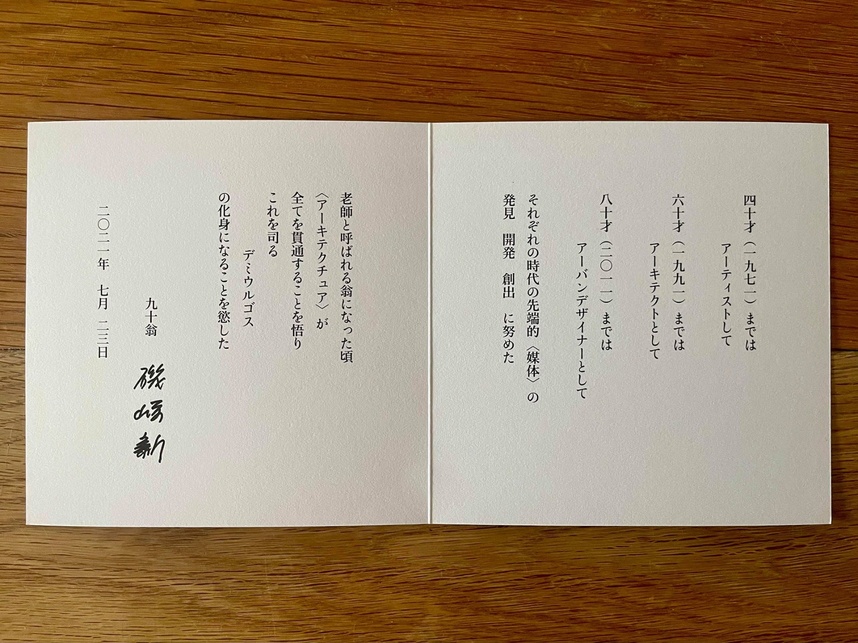 四十才（一九七一）までは
アーティストして
六十才（一九九一）までは
アーキテクトとして
八十才（二〇一一）までは
アーバンデザイナーとして
それぞれの時代の先端的〈媒体〉の
発見　開発　創出　に努めた
老師と呼ばれる翁になった頃
〈アーキテクチュア〉が
全てを貫通することを悟り
これを司る
デミウルゴス
の化身になることを慾した
九十翁　磯崎新
二〇二一年　七月　二三日